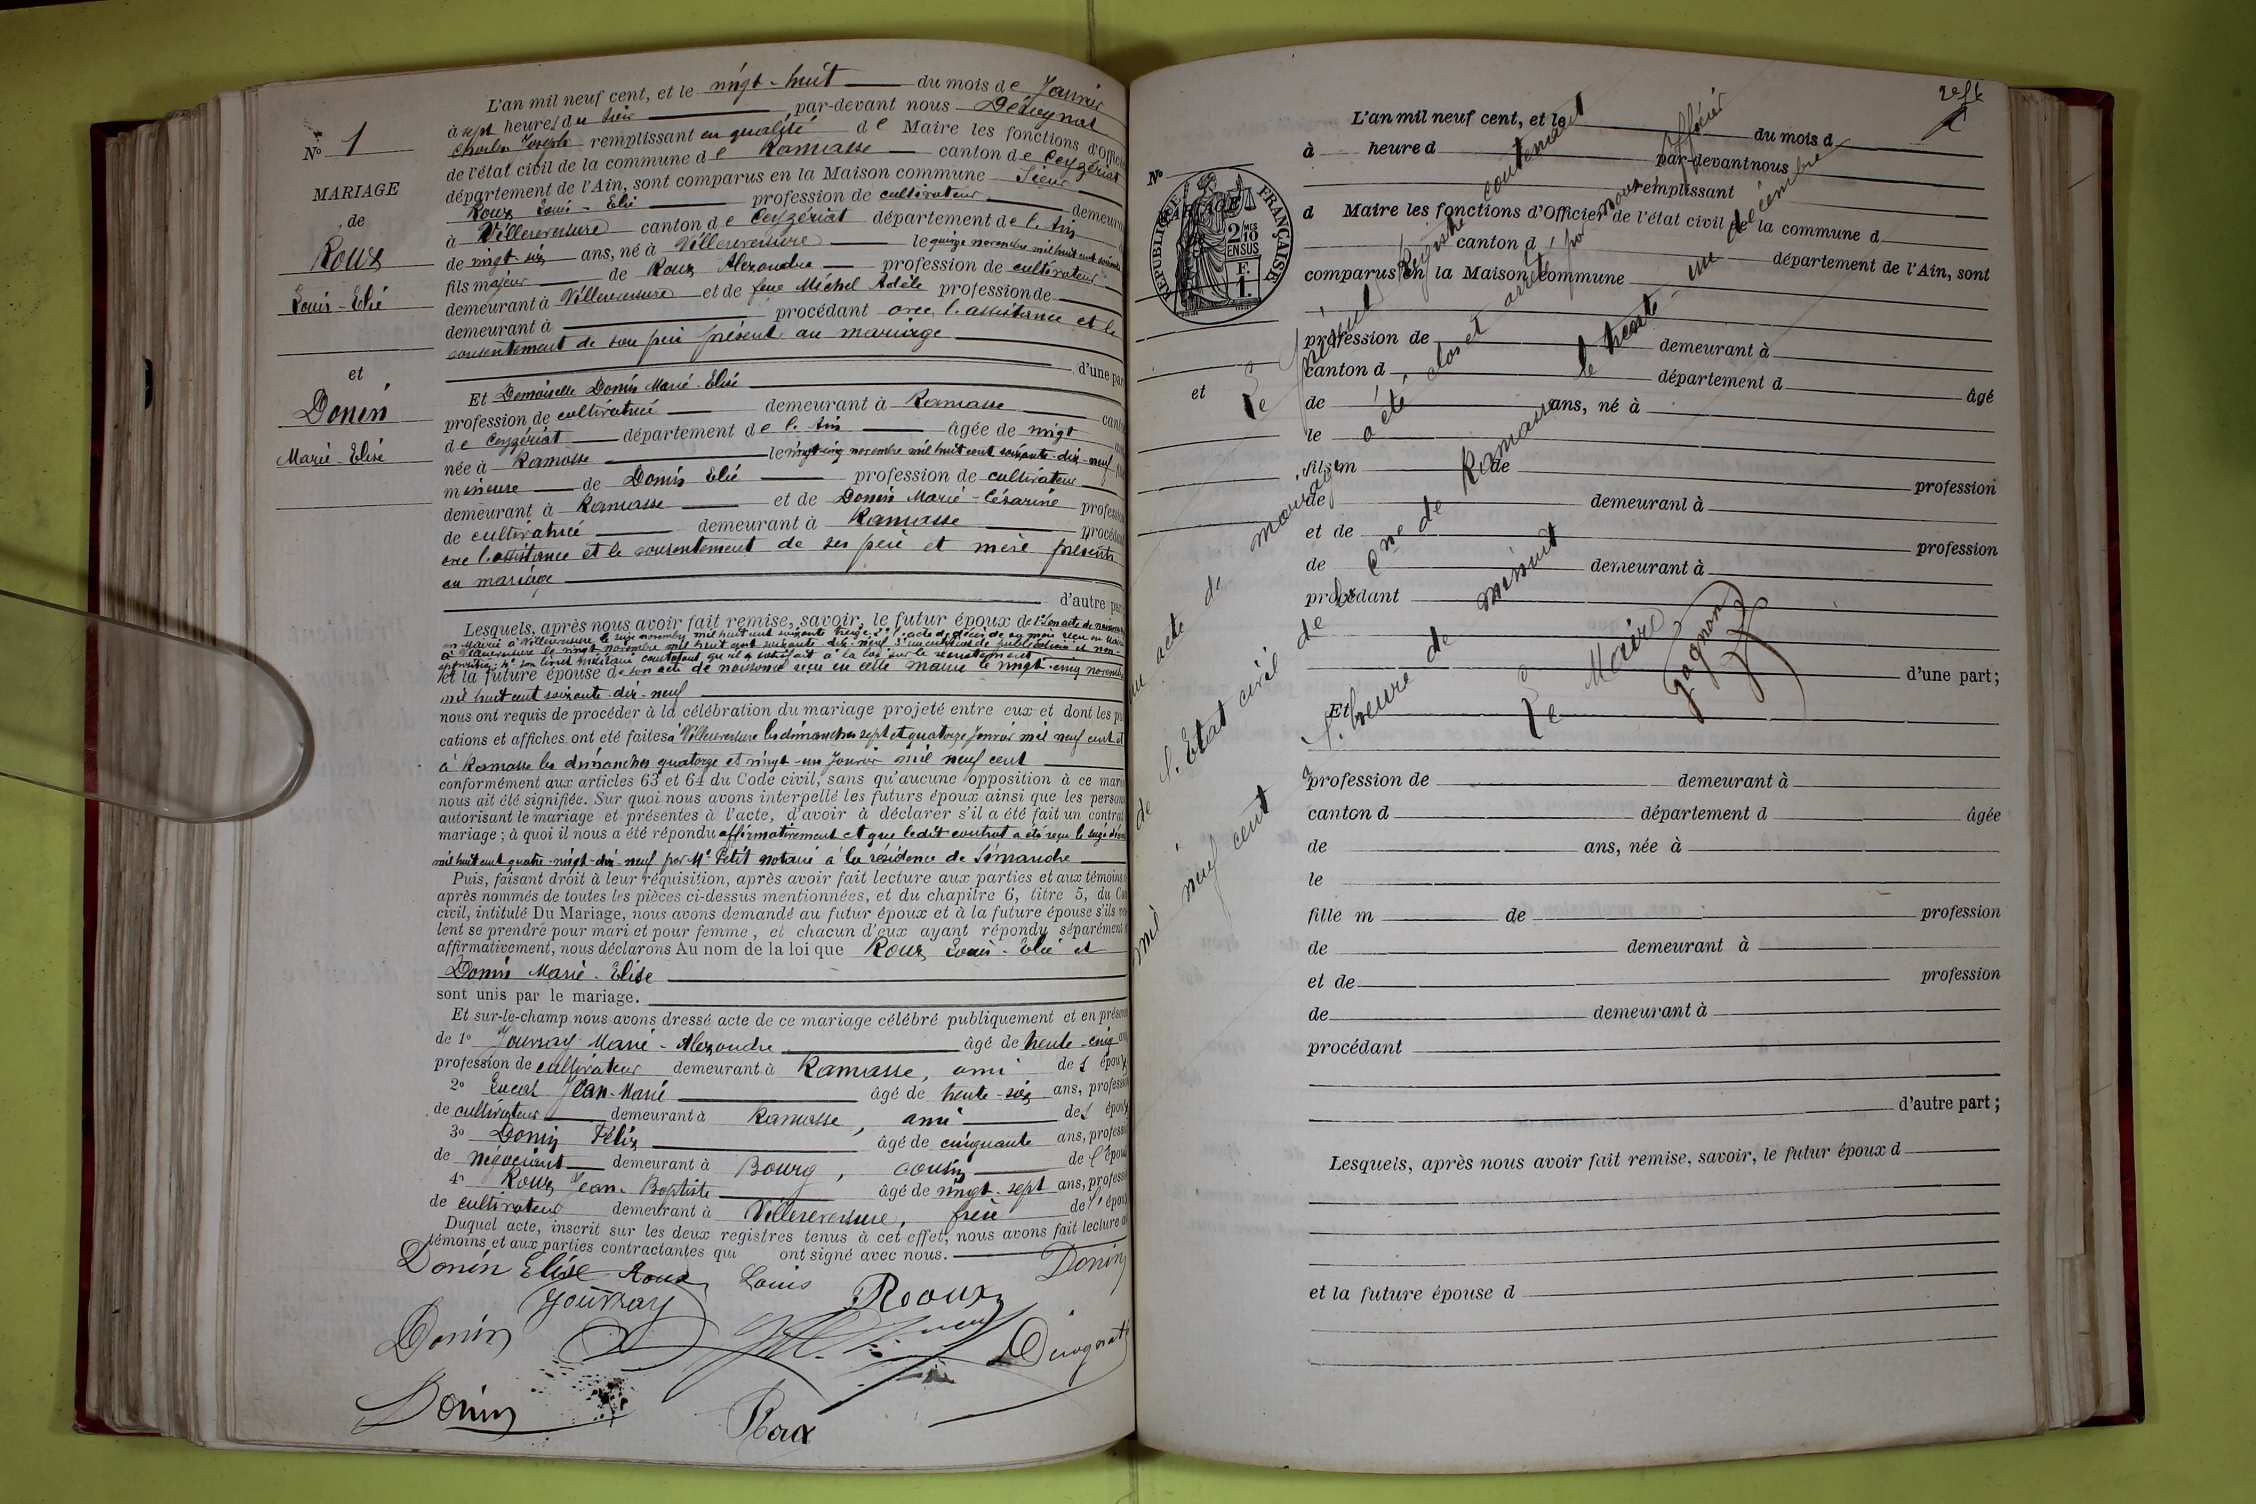 N° 1
MARIAGE
de
Roux
Louis-Elie
et
Donin
Marie-Elise
L'an mil neuf cent, et le vingt-huit du mois de Janvier
à sept heures du soir par-devant nous
Charles Joseph remplissant en qualité de Maire les fonctions d'Officier
de l'état civil de la commune de Ramasse canton de Ceyzériat
département de l'Ain, sont comparus en la Maison commune Sieur
Roux Louis-Elie profession de cultivateur demeurant
à Villereversure canton de Ceyzériat département de l'Ain
de vingt six ans, né à Villereversure le quinze novembre mil huit cent soixante
fils majeur de Roux Alexandre profession de cultivateur
demeurant à Villereversure et de feue Michel Adèle profession de
demeurant à procédant avec l'assistance et le
consentement de son père présent au mariage
d'une par
Et Demoiselle Donin Marie-Elise
profession de cultivatrice demeurant à Ramasse canton
de Ceyzériat département de l'Ain âgée de vingt ans
née à Ramasse le vingt-cinq novembre mil huit cent soixante-dix-neuf
mineure de Donin Elie profession de cultivateur
demeurant à Ramasse et de Donin Marie-Césarine profession
de cultivatrice demeurant à Ramasse procédant
avec l'assistance et le consentement de ses père et mère présents
au mariage
d'autre par
Lesquels, après nous avoir fait remise, savoir, le futur époux de
en Mairie à Villereversure le
à Villereversure le vingt novembre mil huit cent soixante dix-neuf
opposition; 4° son livret militaire constatant qu'il a satisfait à la loi sur le recrutement
et la future épouse de son acte de naissance reçu en cette mairie le vingt-cinq novembre
mil huit cent soixante-dix-neuf
nous ont requis de procéder à la célébration du mariage projeté entre eux et dont les pu
cations et affiches ont été faites à Villereversure les dimanches sept et quatorze Janvier mil neuf cent et
à Ramasse les dimanches quatorze et vingt-un Janvier mil neuf cent
conformément aux articles 63 et 64 du Code civil, sans qu'aucune opposition à ce maria
nous ait été signifiée. Sur quoi nous avons interpellé les futurs époux ainsi que les person
autorisant le mariage et présentes à l'acte, d'avoir à déclarer s'il a été fait un contrat
mariage; à quoi il nous a été répondu affirmativement et que ledit contrat a été reçu le
mil huit cent quatre-vingt-dix-neuf par Me Petit notaire à la résidence de Simandre
Puis, faisant droit à leur réquisition, après avoir fait lecture aux parties et aux témoins
après nommés de toutes les pièces ci-dessus mentionnées, et du chapitre 6, titre 5, du Co
civil, intitulé Du Mariage, nous avons demandé au futur époux et à la future épouse s'ils ve
lent se prendre pour mari et pour femme, et chacun d'eux ayant répondu séparément
affirmativement, nous déclarons Au nom de la loi que Roux Louis-Elie et
Donin Marie-Elise
sont unis par le mariage.
Et sur-le-champ nous avons dressé acte de ce mariage célébré publiquement et en présen
de 1° Jouvray Marie-Alexandre âgé de trente-cinq ans
profession de cultivateur demeurant à Ramasse, ami des époux
2° Jean-Marie âgé de trente-six ans, profession
de cultivateur demeurant à Ramasse, ami des époux
3° Donin Félix âgé de cinquante ans, profession
de négociant demeurant à Bourg, cousin de l'épou
4° Roux Jean-Baptiste âgé de vingt-sept ans, profession
de cultivateur demeurant à Villereversure, frère de l'époux
Duquel acte, inscrit sur les deux registres tenus à cet effet, nous avons fait lecture a
témoins et aux parties contractantes qui ont signé avec nous.
Donin Elise Roux Louis Donin
Jouvray Roux
Donin
Donin Roux
L'an mil neuf cent, et le du mois d
à heure d par-devant nous
remplissant
d Maire les fonctions d'Officier de l'état civil de la commune d
canton d département de l'Ain, sont
comparus en la Maison commune
N°
RÉPUBLIQUE FRANÇAISE
MARIAGE
2/10 MES
EN SUS
F.
1.
profession de demeurant à
canton d département d âgé
et
de ans, né à
le
fils m de profession
de demeurant à
et de profession
de demeurant à
procédant
d'une part;
Et
profession de demeurant à
canton d département d âgée
de ans, née à
le
fille m de profession
de demeurant à
et de profession
de demeurant à
procédant
d'autre part;
Lesquels, après nous avoir fait remise, savoir, le futur époux d
et la future épouse d
Le présent Registre contenant
un acte de mariage a été clos et arrêté par nous Officier
de l'Etat civil de la Cne de Ramasse le trente-un décembre
mil neuf cent à l'heure de minuit
Le Maire
Gagnon